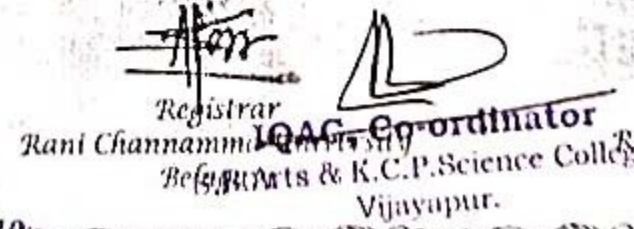 Registrar
Rani Channamma University
IQAC Co-ordinator
Arts & K.C.P.Science Colleg
Vijayapur.